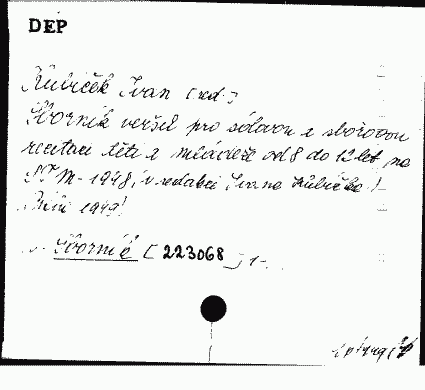 DEP
Kubíček Ivan [red.]
Sborník veršů pro sólovou a sborovou
recitaci dětí a mládeže od 8 do 12 let na
1948, v redakci Ivana Kubíčka
1949
Sborník [223068]